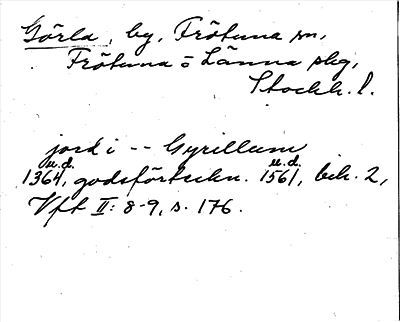 Görla, by, Frötuna sn,
Frötuna o Länna skg,
Stockh. l.
jord i -- Gyrillum
u.d. u.d.
1364, godsförteckn. 1561, bih. 2,
Vft II: 8-9, s. 176.